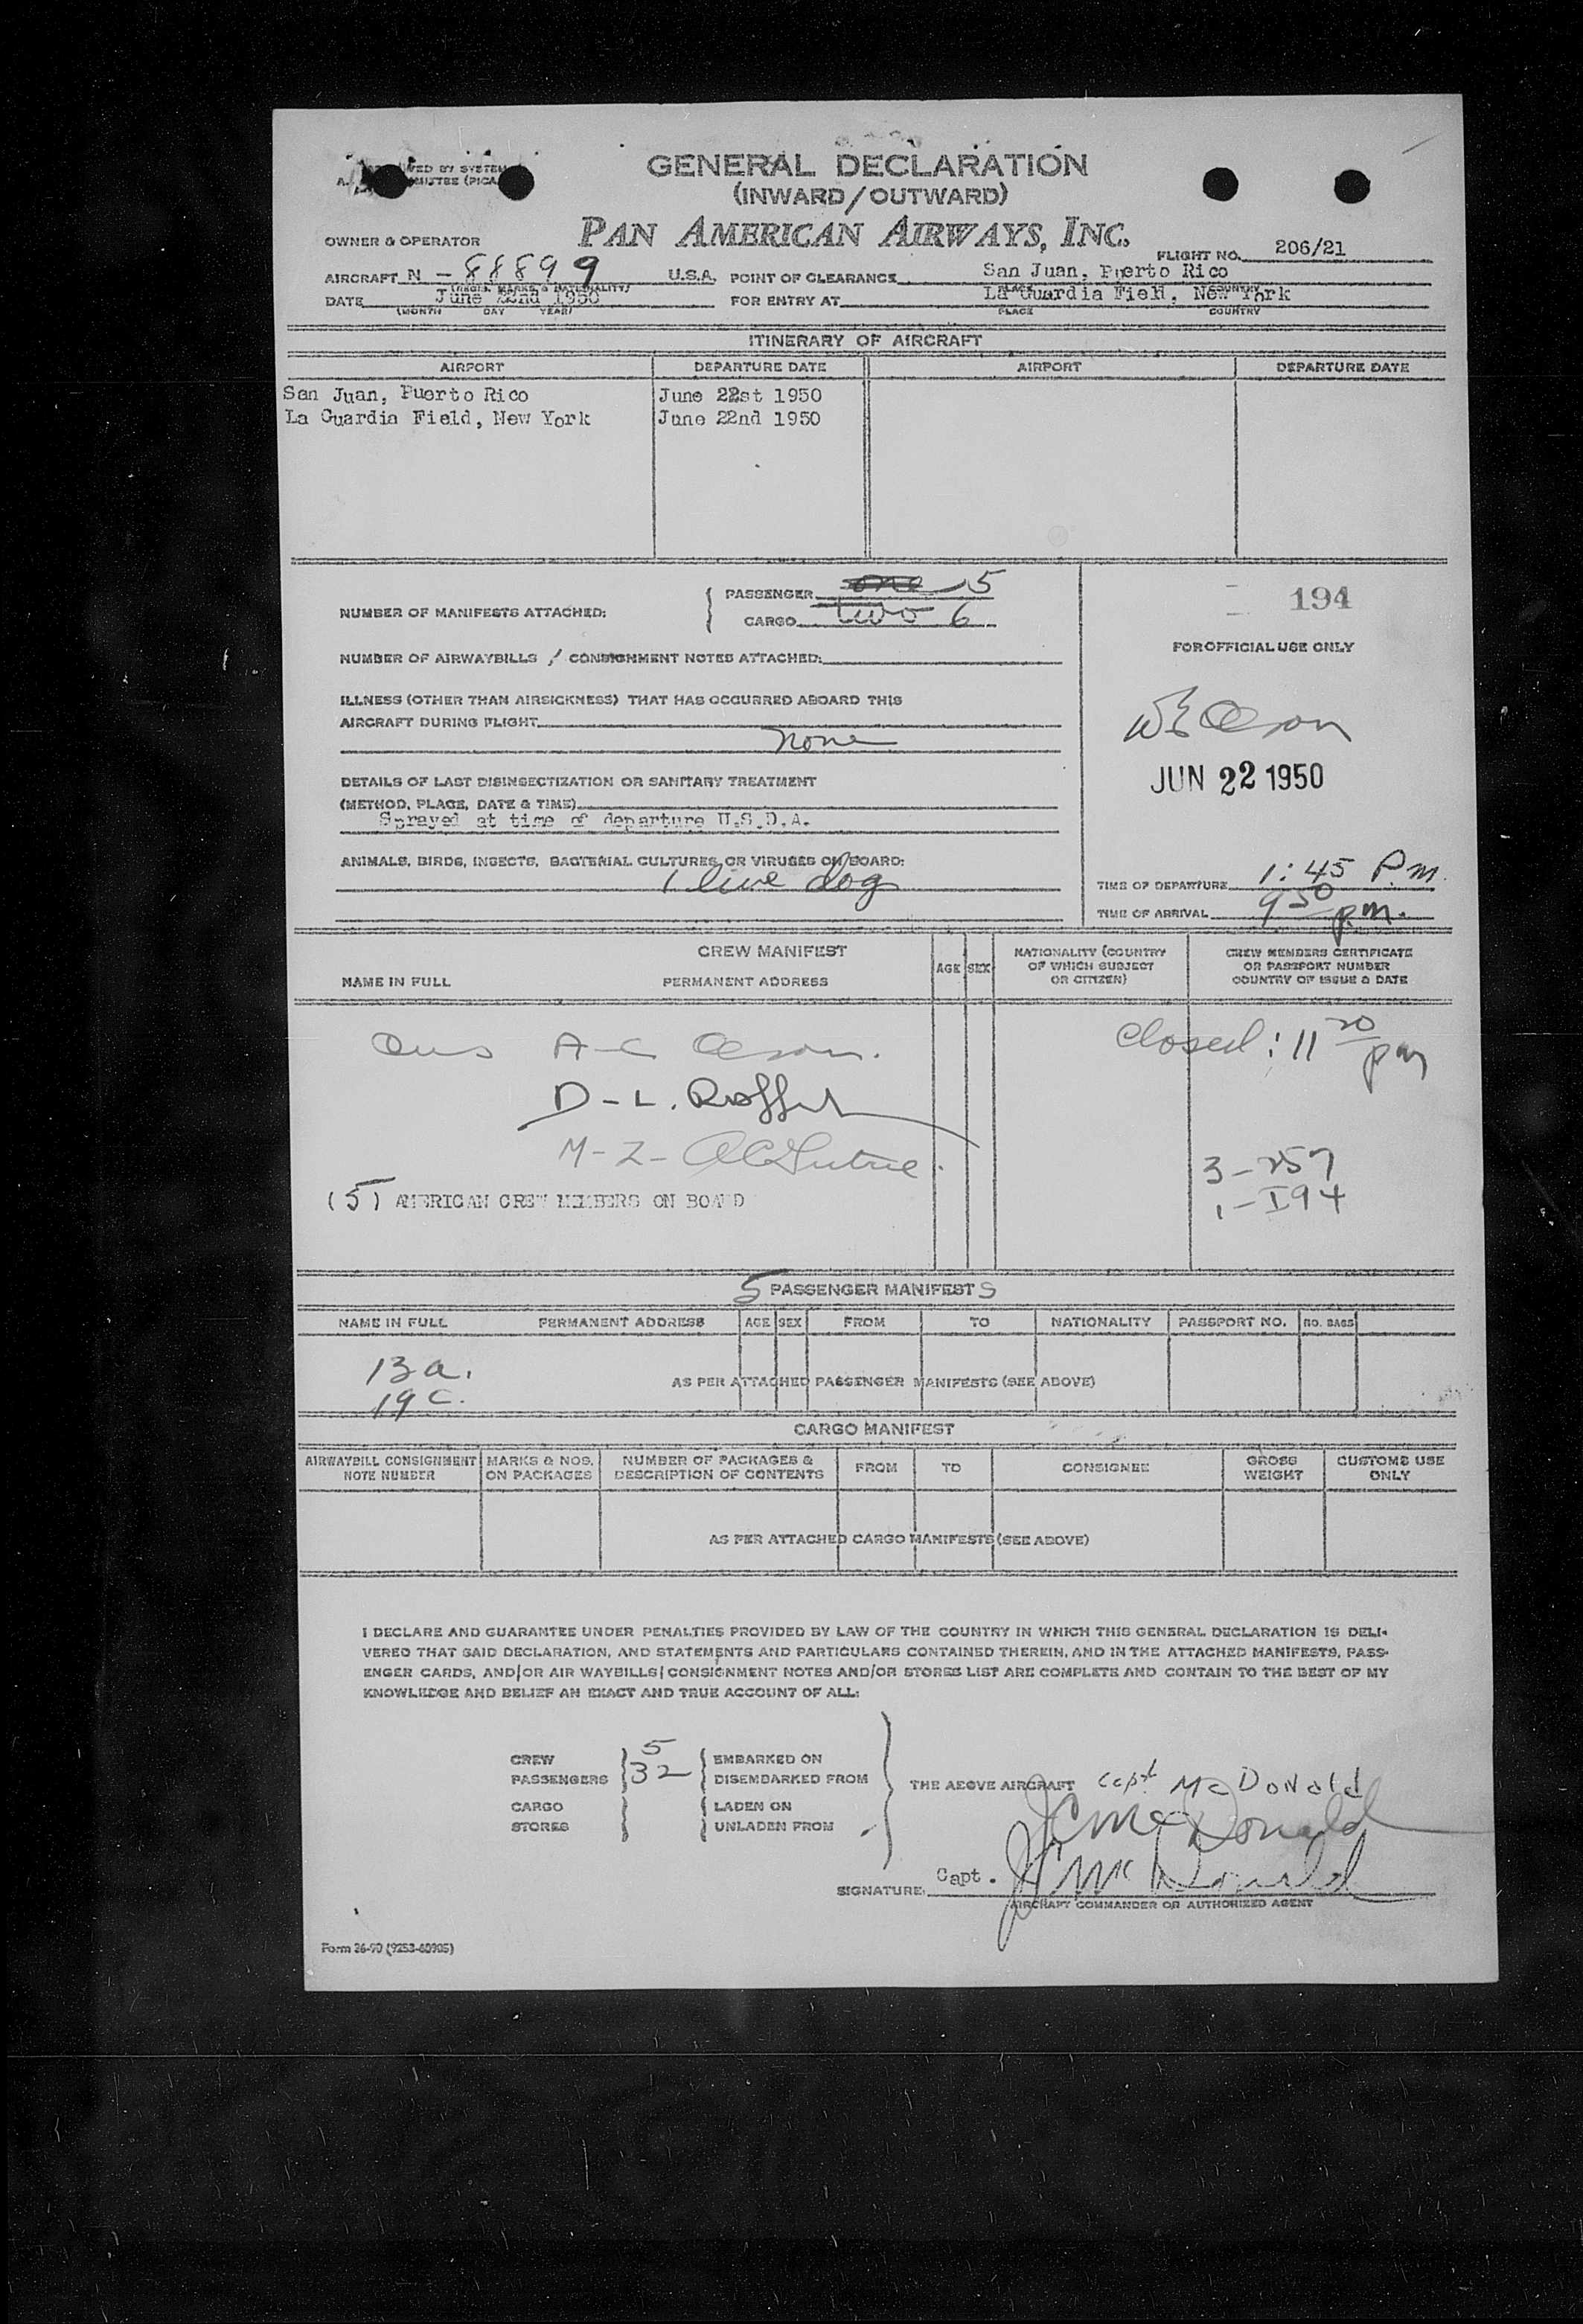 GENERAL DECLARATION
(INWARD/OUTWARD)
PAN AMERICAN AIRWAYS, INC.
OWNER & OPERATOR
FLIGHT NO. 206/21
AIRCRAFT N - 88899 U.S.A. POINT OF CLEARANCE San Juan, Puerto Rico
(REGIS. MARKS & NATIONALITY) PLACE COUNTRY
DATE June 22nd 1950 FOR ENTRY AT La Guardia Field, New York
(MONTH DAY YEAR) PLACE COUNTRY
ITINERARY OF AIRCRAFT
AIRPORT DEPARTURE DATE AIRPORT DEPARTURE DATE
San Juan, Puerto Rico June 22st 1950
La Guardia Field, New York June 22nd 1950
NUMBER OF MANIFESTS ATTACHED: PASSENGER one 5
CARGO two 6
194
FOR OFFICIAL USE ONLY
NUMBER OF AIRWAYBILLS / CONSIGNMENT NOTES ATTACHED:
ILLNESS (OTHER THAN AIRSICKNESS) THAT HAS OCCURRED ABOARD THIS
AIRCRAFT DURING FLIGHT
none
JUN 22 1950
DETAILS OF LAST DISINSECTIZATION OR SANITARY TREATMENT
(METHOD, PLACE, DATE & TIME)
Sprayed at time of departure U.S.D.A.
ANIMALS, BIRDS, INSECTS, BACTERIAL CULTURES, OR VIRUSES ON BOARD:
1 live dog
TIME OF DEPARTURE 1:45 P.m.
TIME OF ARRIVAL 9 50 p.m.
CREW MANIFEST
NAME IN FULL PERMANENT ADDRESS AGE SEX
NATIONALITY (COUNTRY
OF WHICH SUBJECT
OR CITIZEN)
CREW MEMBERS CERTIFICATE
OR PASSPORT NUMBER
COUNTRY OF ISSUE & DATE
Closed: 11 20 pm
3 - 257
1 - I94
(5) AMERICAN CREW MEMBERS ON BOARD
5 PASSENGER MANIFESTS
NAME IN FULL PERMANENT ADDRESS AGE SEX FROM TO NATIONALITY PASSPORT NO. NO. BAGS
13 a.
19 c.
AS PER ATTACHED PASSENGER MANIFESTS (SEE ABOVE)
CARGO MANIFEST
AIRWAYBILL CONSIGNMENT
NOTE NUMBER
MARKS & NOS.
ON PACKAGES
NUMBER OF PACKAGES &
DESCRIPTION OF CONTENTS
FROM TO CONSIGNEE
GROSS
WEIGHT
CUSTOMS USE
ONLY
AS PER ATTACHED CARGO MANIFESTS (SEE ABOVE)
I DECLARE AND GUARANTEE UNDER PENALTIES PROVIDED BY LAW OF THE COUNTRY IN WHICH THIS GENERAL DECLARATION IS DELI-
VERED THAT SAID DECLARATION, AND STATEMENTS AND PARTICULARS CONTAINED THEREIN, AND IN THE ATTACHED MANIFESTS, PASS-
ENGER CARDS, AND/OR AIR WAYBILLS/CONSIGNMENT NOTES AND/OR STORES LIST ARE COMPLETE AND CONTAIN TO THE BEST OF MY
KNOWLEDGE AND BELIEF AN EXACT AND TRUE ACCOUNT OF ALL:
CREW 5 EMBARKED ON
PASSENGERS 32 DISEMBARKED FROM
THE ABOVE AIRCRAFT Capt McDonald
CARGO LADEN ON
STORES UNLADEN FROM
JC McDonald
SIGNATURE: Capt. JC McDonald
AIRCRAFT COMMANDER OR AUTHORIZED AGENT
Form 26-90 (9253-60905)